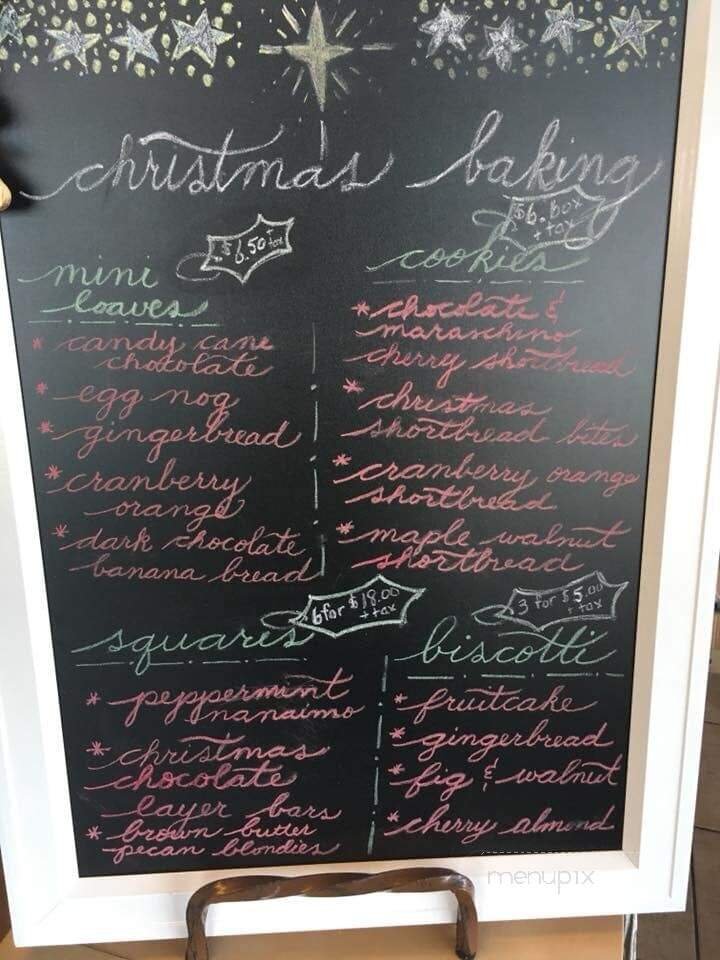 christmas baking
$6.50 + tax
mini
loaves
* candy cane
chocolate
* egg nog
* gingerbread
* cranberry
orange
* dark chocolate
banana bread
$6. box
+ tax
cookies
* chocolate &
maraschino
cherry shortbread
* christmas
shortbread bites
* cranberry orange
shortbread
* maple walnut
shortbread
6 for $18.00
+ tax
squares
* peppermint
nanaimo
* christmas
chocolate
layer bars
* brown butter
pecan blondies
3 for $5.00
+ tax
biscotti
* fruitcake
* gingerbread
* fig & walnut
* cherry almond
menupix